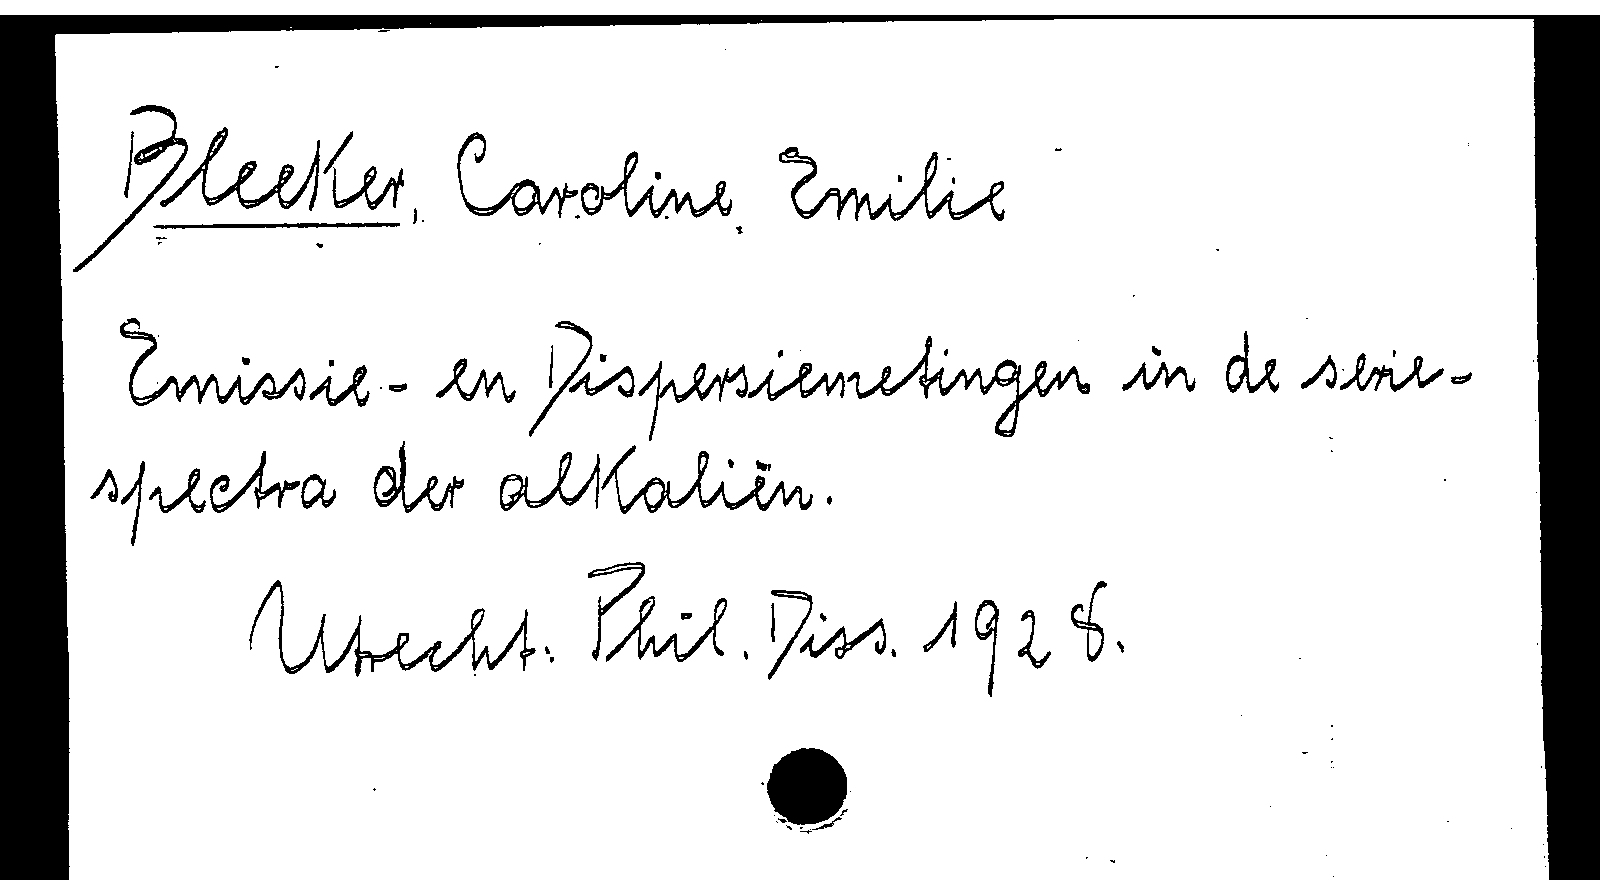 Bleeker, Caroline Emilie
Emissie- en Dispersiemetingen in de serie-
spectra der alkaliën.
Utrecht: Phil. Diss. 1928.